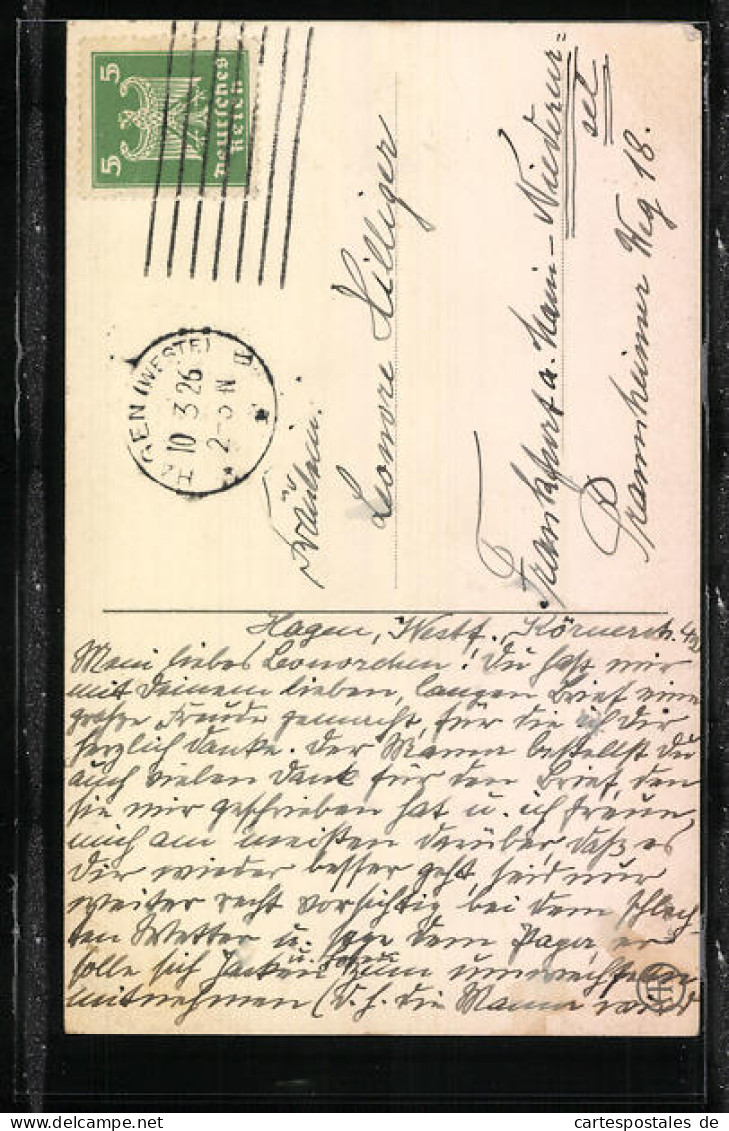 5 5
Deutsches
Reich
HAGEN (WESTF)
10 3 26
2-3 N
Fräulein
Leonore Hilliger
Frankfurt a. Main-Niederur=
sel
Praunheimer Weg 18.
Hagen, Westf., Körnerstr.
Mein liebes Leonorchen! Du hast mir
mit Deinem lieben, langen Brief eine
große Freude gemacht, für die ich Dir
herzlich danke. Der Mama bestellst Du
auch vielen Dank für den Brief, den
sie mir geschrieben hat u. ich freue
mich am meisten darüber, daß es
Dir wieder besser geht, seid nur
weiter recht vorsichtig bei dem schlech-
ten Wetter u. sage dem Papa, er
solle sich Jacken u. zum umwechseln
mitnehmen (d. h. die Mama
cartespostales.de